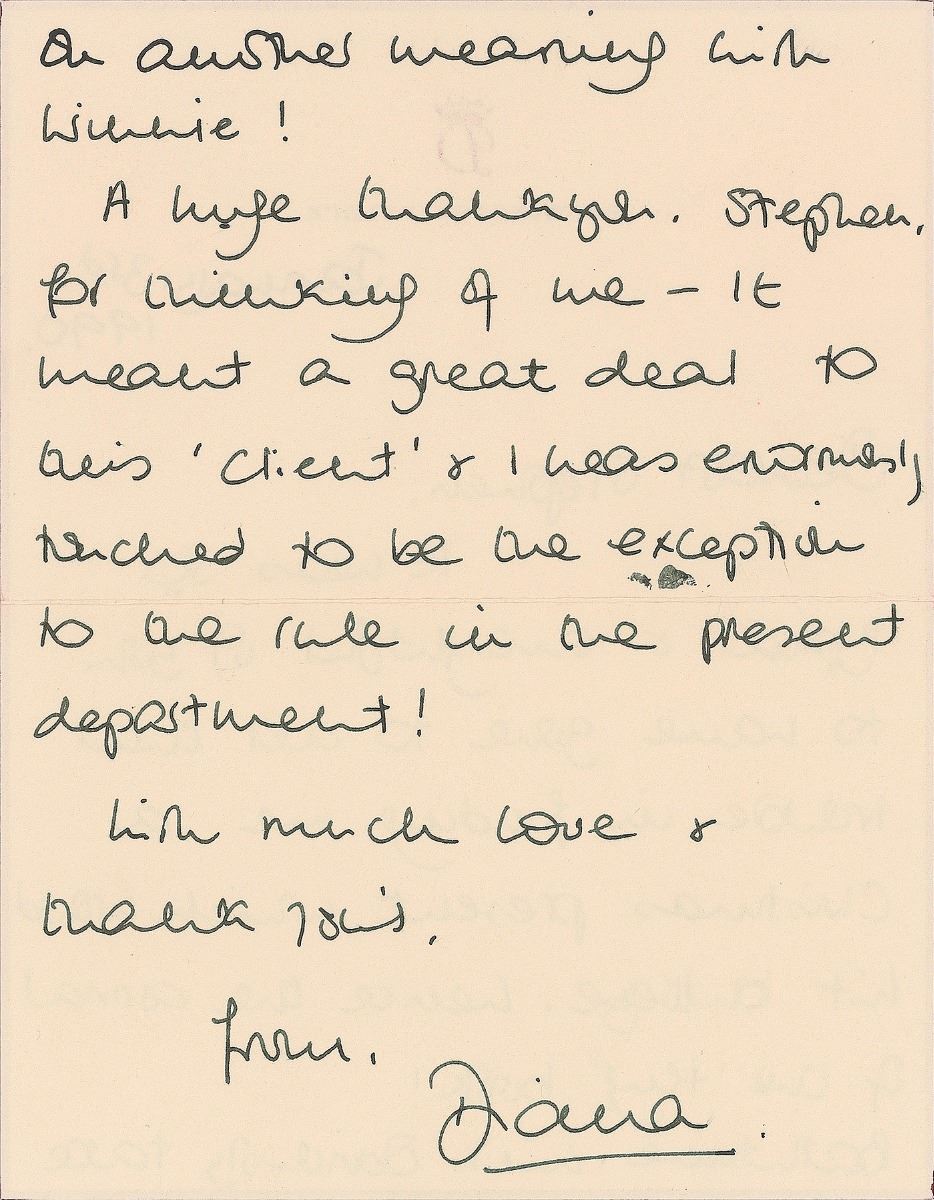 on another meaning with
Winnie !
A huge thankyou. Stephen,
for thinking of me - It
meant a great deal to
this 'client' & I was enormously
touched to be the exception
to the rule in the present
department!
With much love &
thank you's,
from,
Diana.